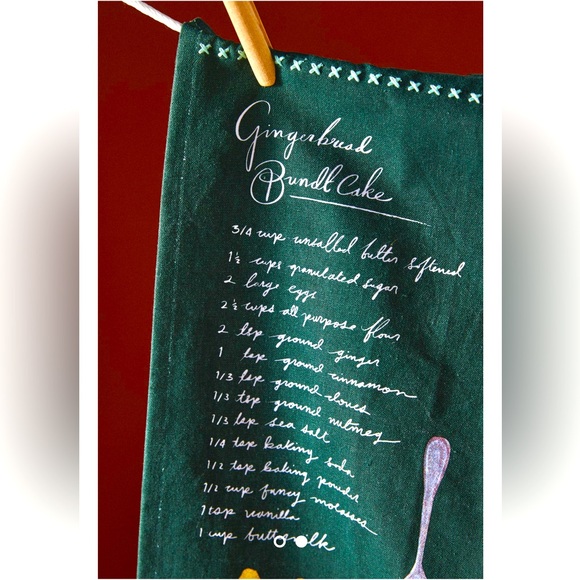 Gingerbread
Bundt Cake
3/4 cup unsalted butter softened
1½ cups granulated sugar
2 large eggs
2½ cups all purpose flour
2 tsp ground ginger
1 tsp ground cinnamon
1/3 tsp ground cloves
1/3 tsp ground nutmeg
1/3 tsp sea salt
1/4 tsp baking soda
1/2 tsp baking powder
1/2 cup fancy molasses
1 tsp vanilla
1 cup buttermilk